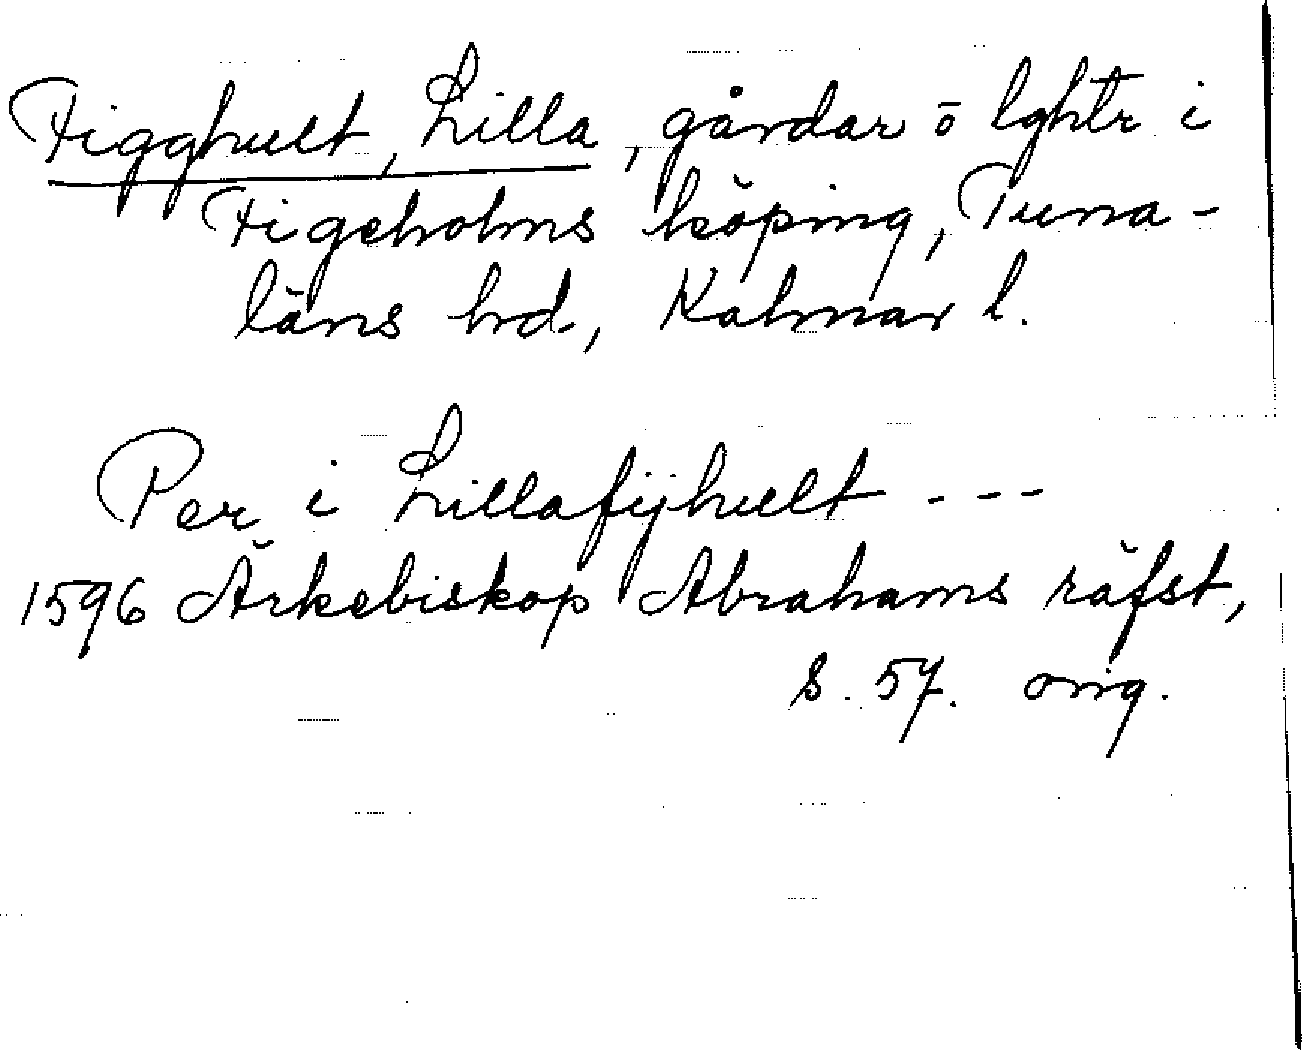 Figghult, Lilla, gårdar o lghtr i
Figeholms köping, Tuna-
läns hd, Kalmar l.
Per i Lillafijhult ---
1596 Ärkebiskop Abrahams räfst,
s. 57. orig.